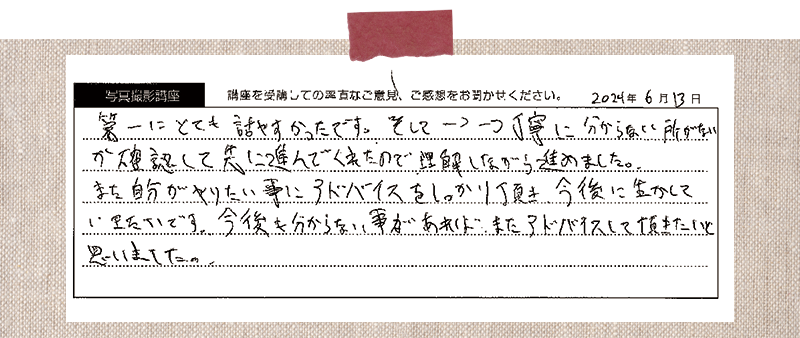 写真撮影講座 講座を受講しての率直なご意見、ご感想をお聞かせください。 2024年6月13日
第一にとても話やすかったです。そして一つ一つ丁寧に分からない所がない
か確認して先に進んでくれたので理解しながら進めました。
また自分がやりたい事にアドバイスをしっかり頂き今後に生かして
いきたいです。今後も分からない事があれば、またアドバイスして頂きたいと
思いました。